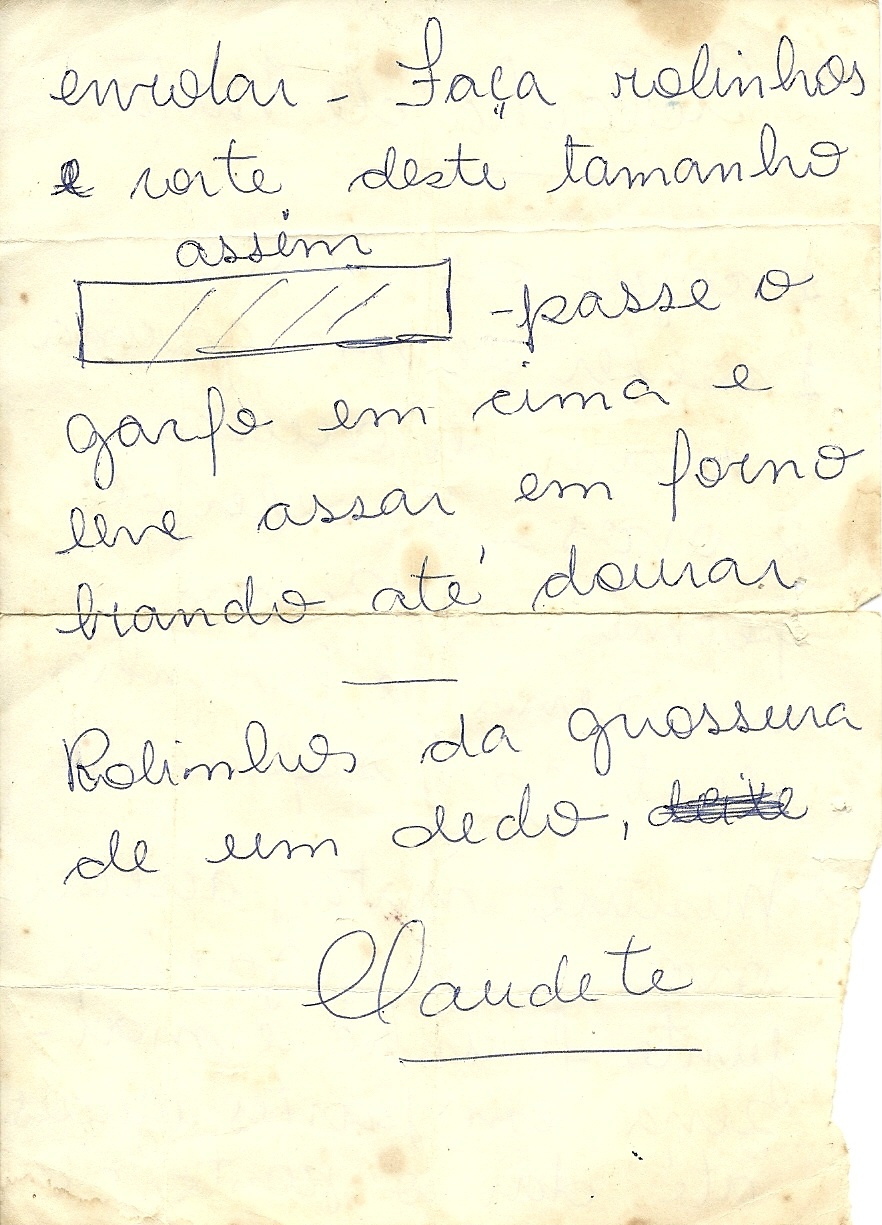 enrolar - Faça rolinhos
e corte deste tamanho
assim
- passe o
garfo em cima e
leve assar em forno
brando até dourar
Rolinhos da grossura
de um dedo, deixe
Claudete